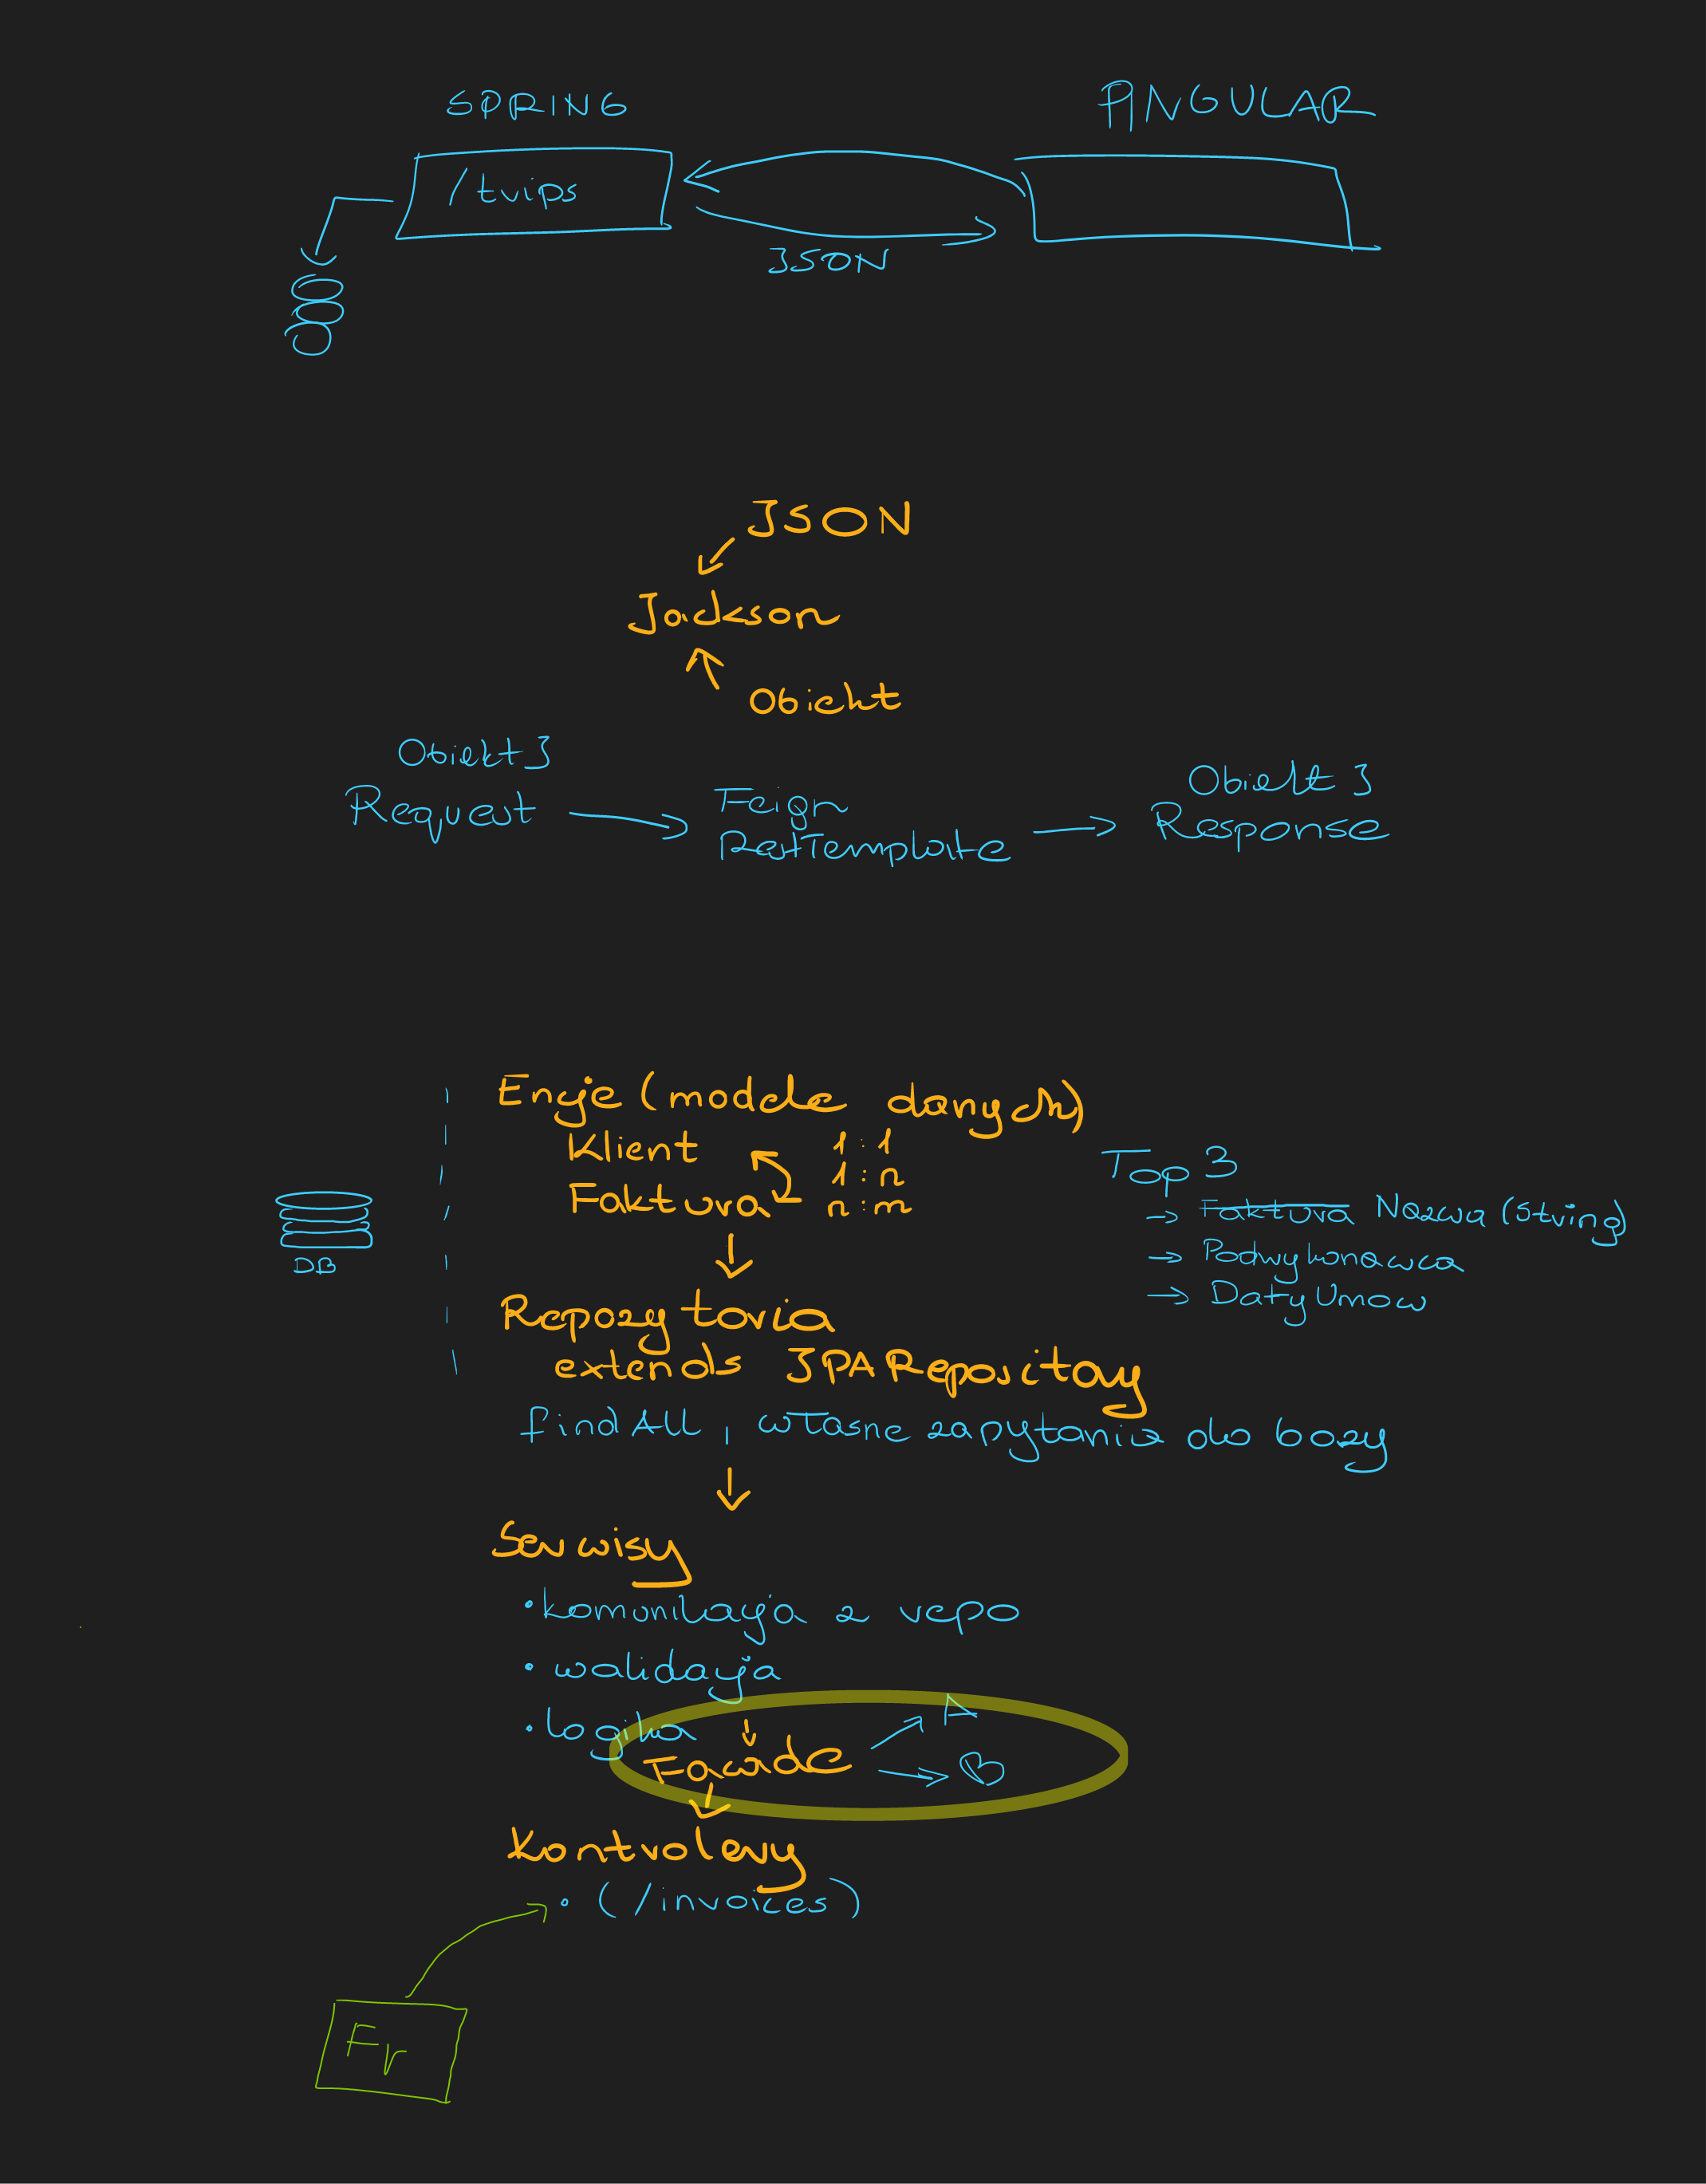 SPRING
ANGULAR
/trips
JSON
JSON
Jackson
Obiekt
Obiekt J
Request
Feign
RestTemplate
Obiekt J
Response
Encje (modele danych)
Klient
1:1
1:n
Faktura
n:m
DB
Top 3
→ Faktura Nazwa (String)
→ Podwykonawca
→ Daty Umow
Repozytoria
extends JPARepository
findAll, własne zapytania do bazy
Serwisy
• komunikacja z repo
• walidacja
• logika
Fasade
A
B
Kontrolery
• (/invoices)
Fr